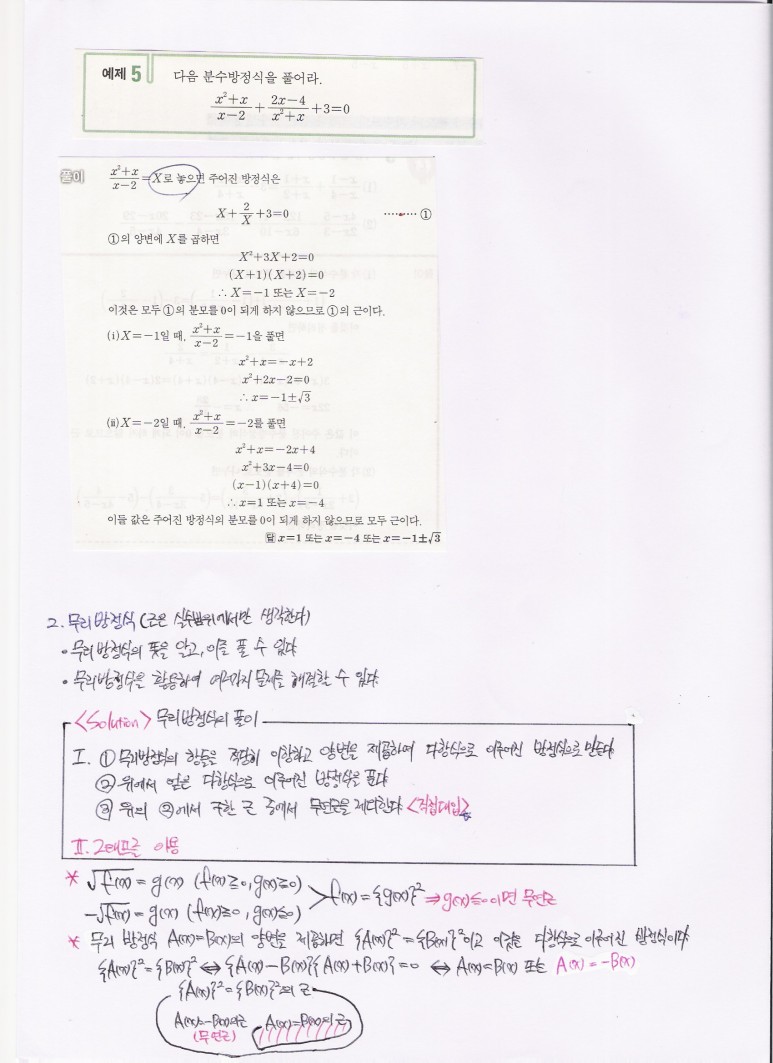 예제 5 다음 분수방정식을 풀어라.
(x²+x)/(x-2) + (2x-4)/(x²+x) +3=0
풀이 (x²+x)/(x-2) =X로 놓으면 주어진 방정식은
X+2/X+3=0 ········ ①
①의 양변에 X를 곱하면
X²+3X+2=0
(X+1)(X+2)=0
∴ X=-1 또는 X=-2
이것은 모두 ①의 분모를 0이 되게 하지 않으므로 ①의 근이다.
(ⅰ) X=-1일 때, (x²+x)/(x-2) =-1을 풀면
x²+x=-x+2
x²+2x-2=0
∴ x=-1±√3
(ⅱ) X=-2일 때, (x²+x)/(x-2) =-2를 풀면
x²+x=-2x+4
x²+3x-4=0
(x-1)(x+4)=0
∴ x=1 또는 x=-4
이들 값은 주어진 방정식의 분모를 0이 되게 하지 않으므로 모두 근이다.
답 x=1 또는 x=-4 또는 x=-1±√3
2. 무리방정식 (근은 실수범위에서만 생각한다)
• 무리방정식의 뜻을 알고, 이를 풀 수 있다
• 무리방정식을 활용하여 여러가지 문제를 해결할 수 있다
<Solution> 무리방정식의 풀이
Ⅰ. ① 무리방정식의 항들을 적당히 이항하고 양변을 제곱하여 다항식으로 이루어진 방정식으로 만든다
② 위에서 얻은 다항식으로 이루어진 방정식을 푼다
③ 위의 ②에서 구한 근 중에서 무연근을 제외한다 <직접대입>
Ⅱ. 그래프를 이용
* √f(x) = g(x) (f(x)≥0, g(x)≥0)
-√f(x) = g(x) (f(x)≥0, g(x)≤0) > f(x) = {g(x)}² ⇒ g(x)≤0 이면 무연근
* 무리 방정식 A(x)=B(x)의 양변을 제곱하면 {A(x)}²={B(x)}²이고 이것은 다항식으로 이루어진 방정식이다
{A(x)}²={B(x)}² ⇔ {A(x)-B(x)}{A(x)+B(x)}=0 ⇔ A(x)=B(x) 또는 A(x)=-B(x)
{A(x)}²={B(x)}²의 근
A(x)=-B(x)의 근 A(x)=B(x)의 근
(무연근)